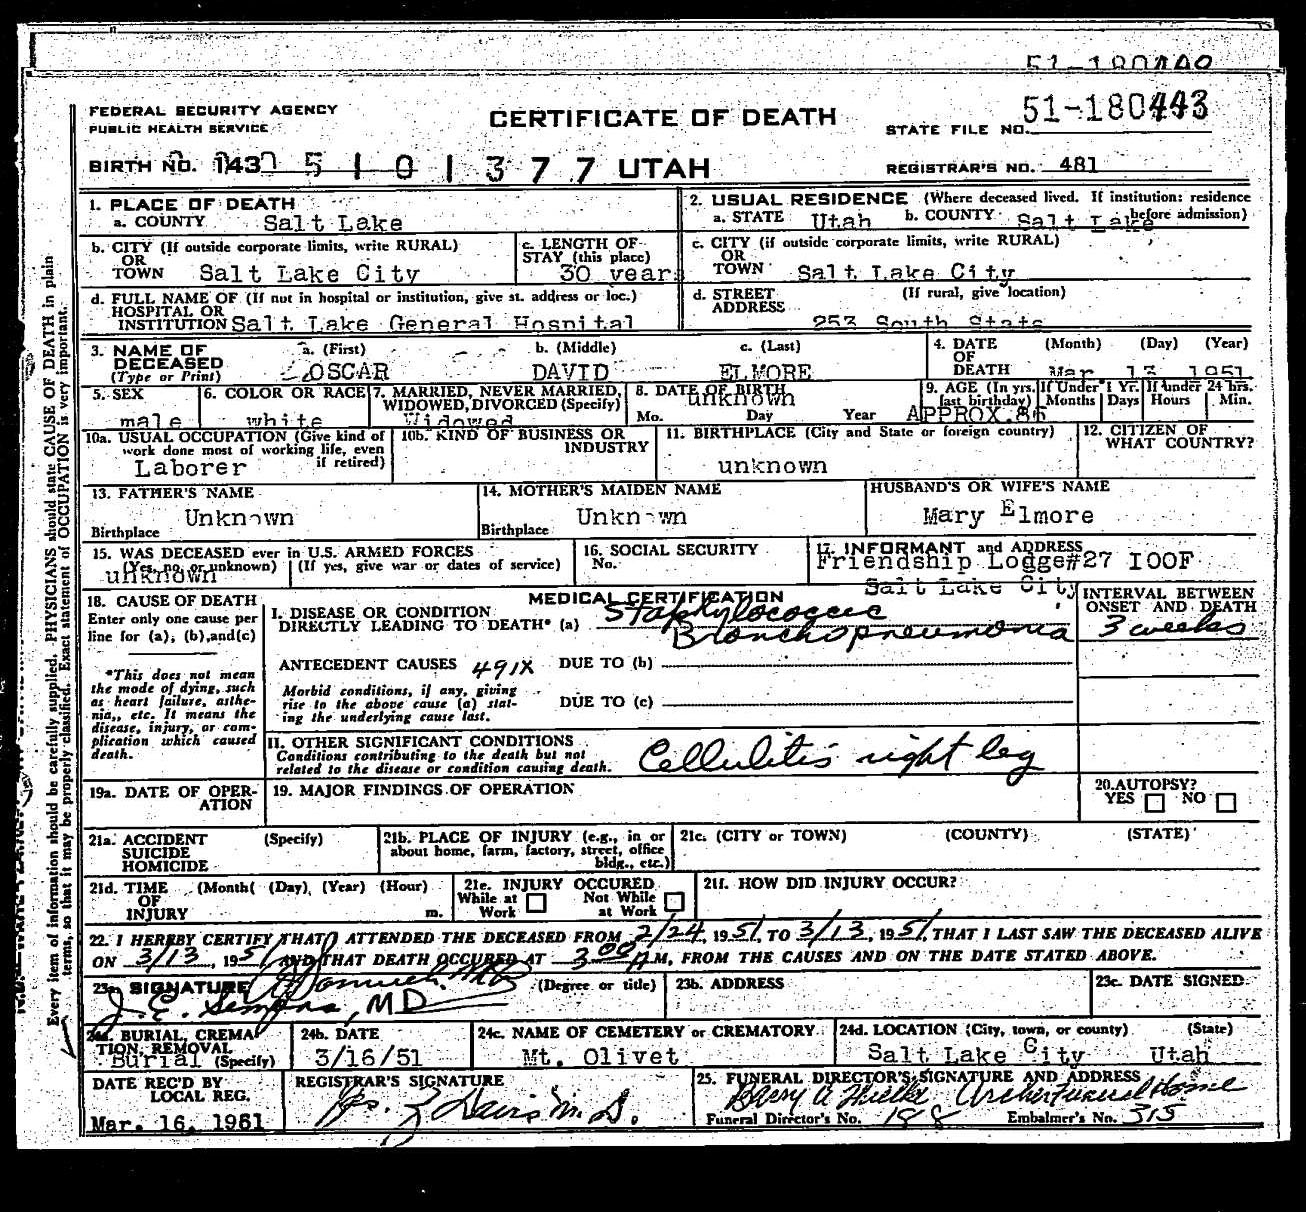 51-180
FEDERAL SECURITY AGENCY
PUBLIC HEALTH SERVICE
CERTIFICATE OF DEATH
STATE FILE NO. 51-180443
BIRTH NO. 143 5 1 0 1 3 7 7 UTAH
REGISTRAR'S NO. 481
1. PLACE OF DEATH
a. COUNTY Salt Lake
2. USUAL RESIDENCE (Where deceased lived. If institution: residence before admission)
a. STATE Utah b. COUNTY Salt Lake
b. CITY (If outside corporate limits, write RURAL)
OR
TOWN Salt Lake City
c. LENGTH OF
STAY (this place)
30 years
c. CITY (if outside corporate limits, write RURAL)
OR
TOWN Salt Lake City
d. FULL NAME OF (If not in hospital or institution, give st. address or loc.)
HOSPITAL OR
INSTITUTION Salt Lake General Hospital
d. STREET (If rural, give location)
ADDRESS
253 South State
3. NAME OF
DECEASED
(Type or Print)
a. (First) b. (Middle) c. (Last)
OSCAR DAVID ELMORE
4. DATE (Month) (Day) (Year)
OF
DEATH Mar 13 1951
5. SEX
male
6. COLOR OR RACE
white
7. MARRIED, NEVER MARRIED,
WIDOWED, DIVORCED (Specify)
Widowed
8. DATE OF BIRTH
unknown
Mo. Day Year
9. AGE (In yrs. last birthday)
APPROX.
If Under 1 Yr. Months Days
If under 24 hrs. Hours Min.
10a. USUAL OCCUPATION (Give kind of
work done most of working life, even
if retired)
Laborer
10b. KIND OF BUSINESS OR
INDUSTRY
11. BIRTHPLACE (City and State or foreign country)
unknown
12. CITIZEN OF
WHAT COUNTRY?
13. FATHER'S NAME
Unknown
Birthplace
14. MOTHER'S MAIDEN NAME
Unknown
Birthplace
HUSBAND'S OR WIFE'S NAME
Mary Elmore
15. WAS DECEASED ever in U.S. ARMED FORCES
(Yes, no, or unknown) (If yes, give war or dates of service)
unknown
16. SOCIAL SECURITY
No.
17. INFORMANT and ADDRESS
Friendship Lodge#27 IOOF
Salt Lake City
18. CAUSE OF DEATH
Enter only one cause per
line for (a), (b), and (c)
*This does not mean
the mode of dying, such
as heart failure, asthe-
nia, etc. It means the
disease, injury, or com-
plication which caused
death.
MEDICAL CERTIFICATION
I. DISEASE OR CONDITION
DIRECTLY LEADING TO DEATH* (a) Staphylococcic
Bronchopneumonia
INTERVAL BETWEEN
ONSET AND DEATH
3 weeks
ANTECEDENT CAUSES 491X DUE TO (b)
Morbid conditions, if any, giving
rise to the above cause (a) stat-
ing the underlying cause last.
DUE TO (c)
II. OTHER SIGNIFICANT CONDITIONS
Conditions contributing to the death but not
related to the disease or condition causing death.
Cellulitis right leg
19a. DATE OF OPER-
ATION
19. MAJOR FINDINGS OF OPERATION
20. AUTOPSY?
YES NO
21a. ACCIDENT (Specify)
SUICIDE
HOMICIDE
21b. PLACE OF INJURY (e.g., in or
about home, farm, factory, street, office
bldg., etc.)
21c. (CITY or TOWN) (COUNTY) (STATE)
21d. TIME (Month) (Day) (Year) (Hour)
OF
INJURY m.
21e. INJURY OCCURED
While at Work Not While at Work
21f. HOW DID INJURY OCCUR?
22. I HEREBY CERTIFY THAT I ATTENDED THE DECEASED FROM 2/24, 1951, TO 3/13, 1951, THAT I LAST SAW THE DECEASED ALIVE
ON 3/13, 1951 AND THAT DEATH OCCURED AT 3:00 A M, FROM THE CAUSES AND ON THE DATE STATED ABOVE.
23a. SIGNATURE (Degree or title)
J. E. MD
23b. ADDRESS
23c. DATE SIGNED
24a. BURIAL, CREMA-
TION, REMOVAL
Burial (Specify)
24b. DATE
3/16/51
24c. NAME OF CEMETERY or CREMATORY
Mt. Olivet
24d. LOCATION (City, town, or county) (State)
Salt Lake City Utah
DATE REC'D BY
LOCAL REG.
Mar. 16, 1951
REGISTRAR'S SIGNATURE
Davis M.D.
25. FUNERAL DIRECTOR'S SIGNATURE AND ADDRESS
Harry A Archer Funeral Home
Funeral Director's No. 188 Embalmer's No. 315
Every item of information should be carefully supplied. PHYSICIANS should state CAUSE OF DEATH in plain
terms, so that it may be properly classified. Exact statement of OCCUPATION is very important.